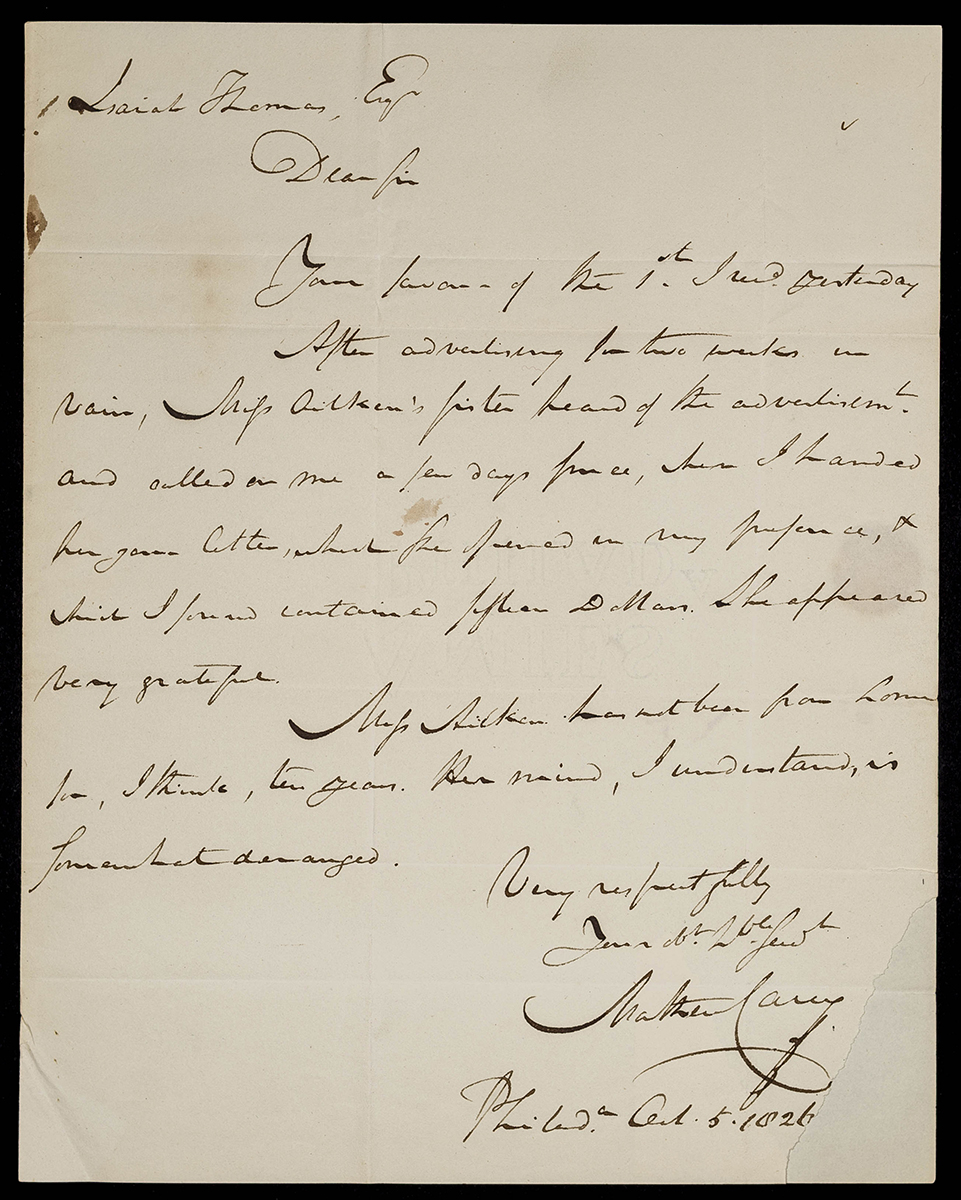 Isaiah Thomas, Esqr
Dear Sir
Your favour of the 1st. I recd. yesterday
After advertising for two weeks in
vain, Miss Aitken's sister heard of the advertisemt.
and called on me a few days since, when I handed
her your letter, which she opened in my presence, &
which I found contained fifteen Dollars. She appeared
very grateful.
Miss Aitken has not been from home
for, I think, ten years. Her mind, I understand, is
somewhat deranged.
Very respectfully
Your obt. hble servt
Mathew Carey
Philada. Oct. 5. 1826